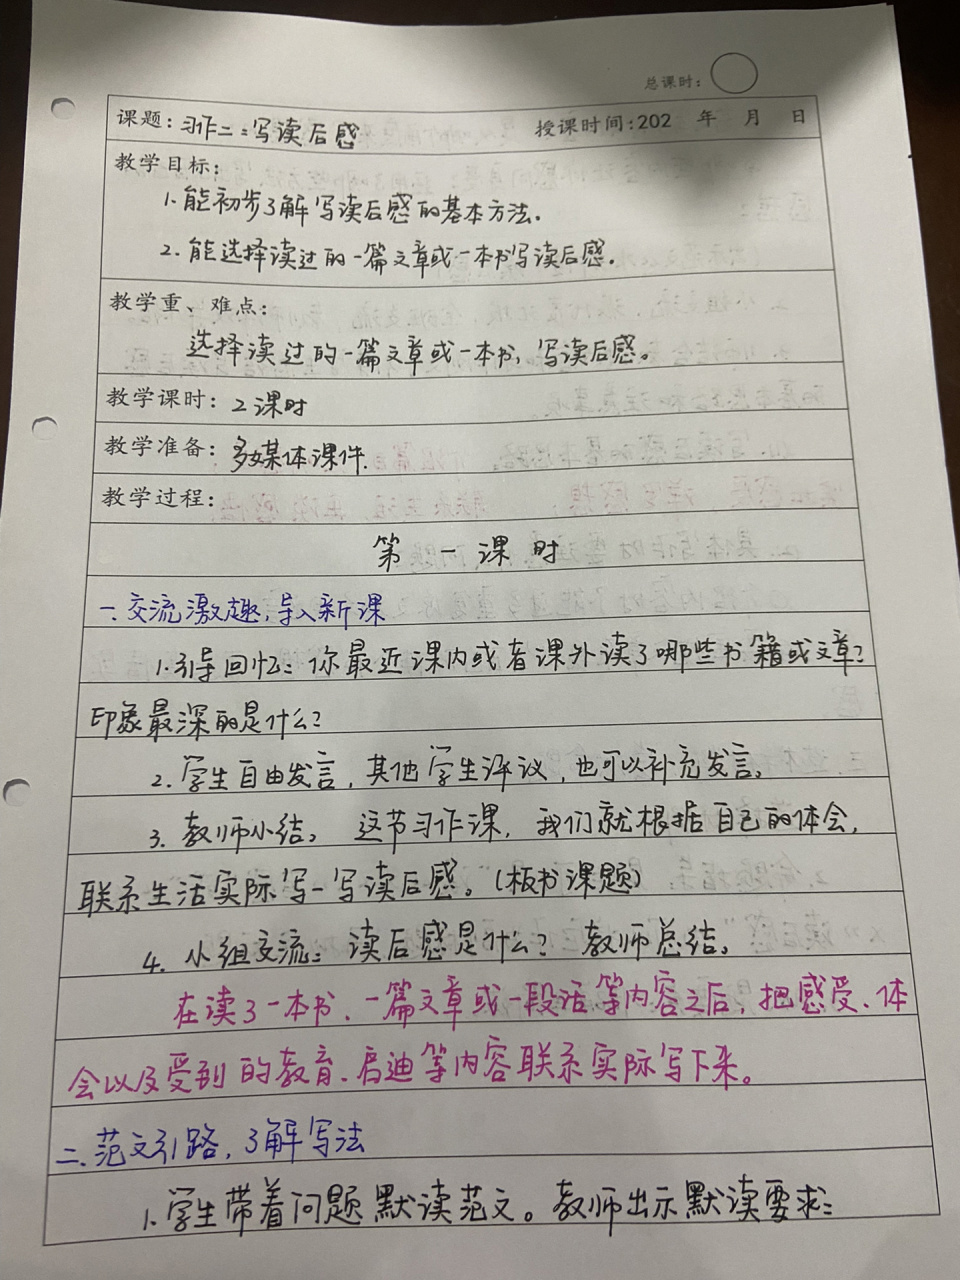 总课时:
课题: 习作二:写读后感 授课时间:202 年 月 日
教学目标:
1.能初步了解写读后感的基本方法.
2.能选择读过的一篇文章或一本书写读后感.
教学重、难点:
选择读过的一篇文章或一本书,写读后感。
教学课时: 2课时
教学准备: 多媒体课件.
教学过程:
第一课时
一.交流激趣,导入新课
1.引导回忆:你最近课内或者课外读了哪些书籍或文章?
印象最深的是什么?
2.学生自由发言,其他学生评议,也可以补充发言。
3.教师小结。 这节习作课,我们就根据自己的体会,
联系生活实际写一写读后感。(板书课题)
4.小组交流:读后感是什么? 教师总结。
在读了一本书、一篇文章或一段话等内容之后,把感受、体
会以及受到的教育、启迪等内容联系实际写下来。
二.范文引路,了解写法
1.学生带着问题默读范文。教师出示默读要求: